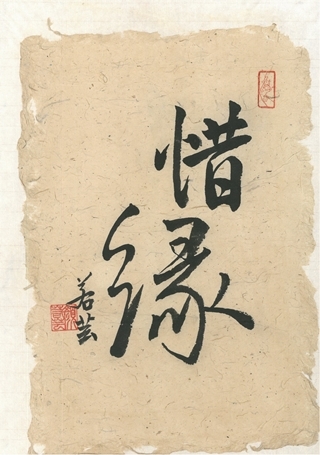 惜
缘
若芸